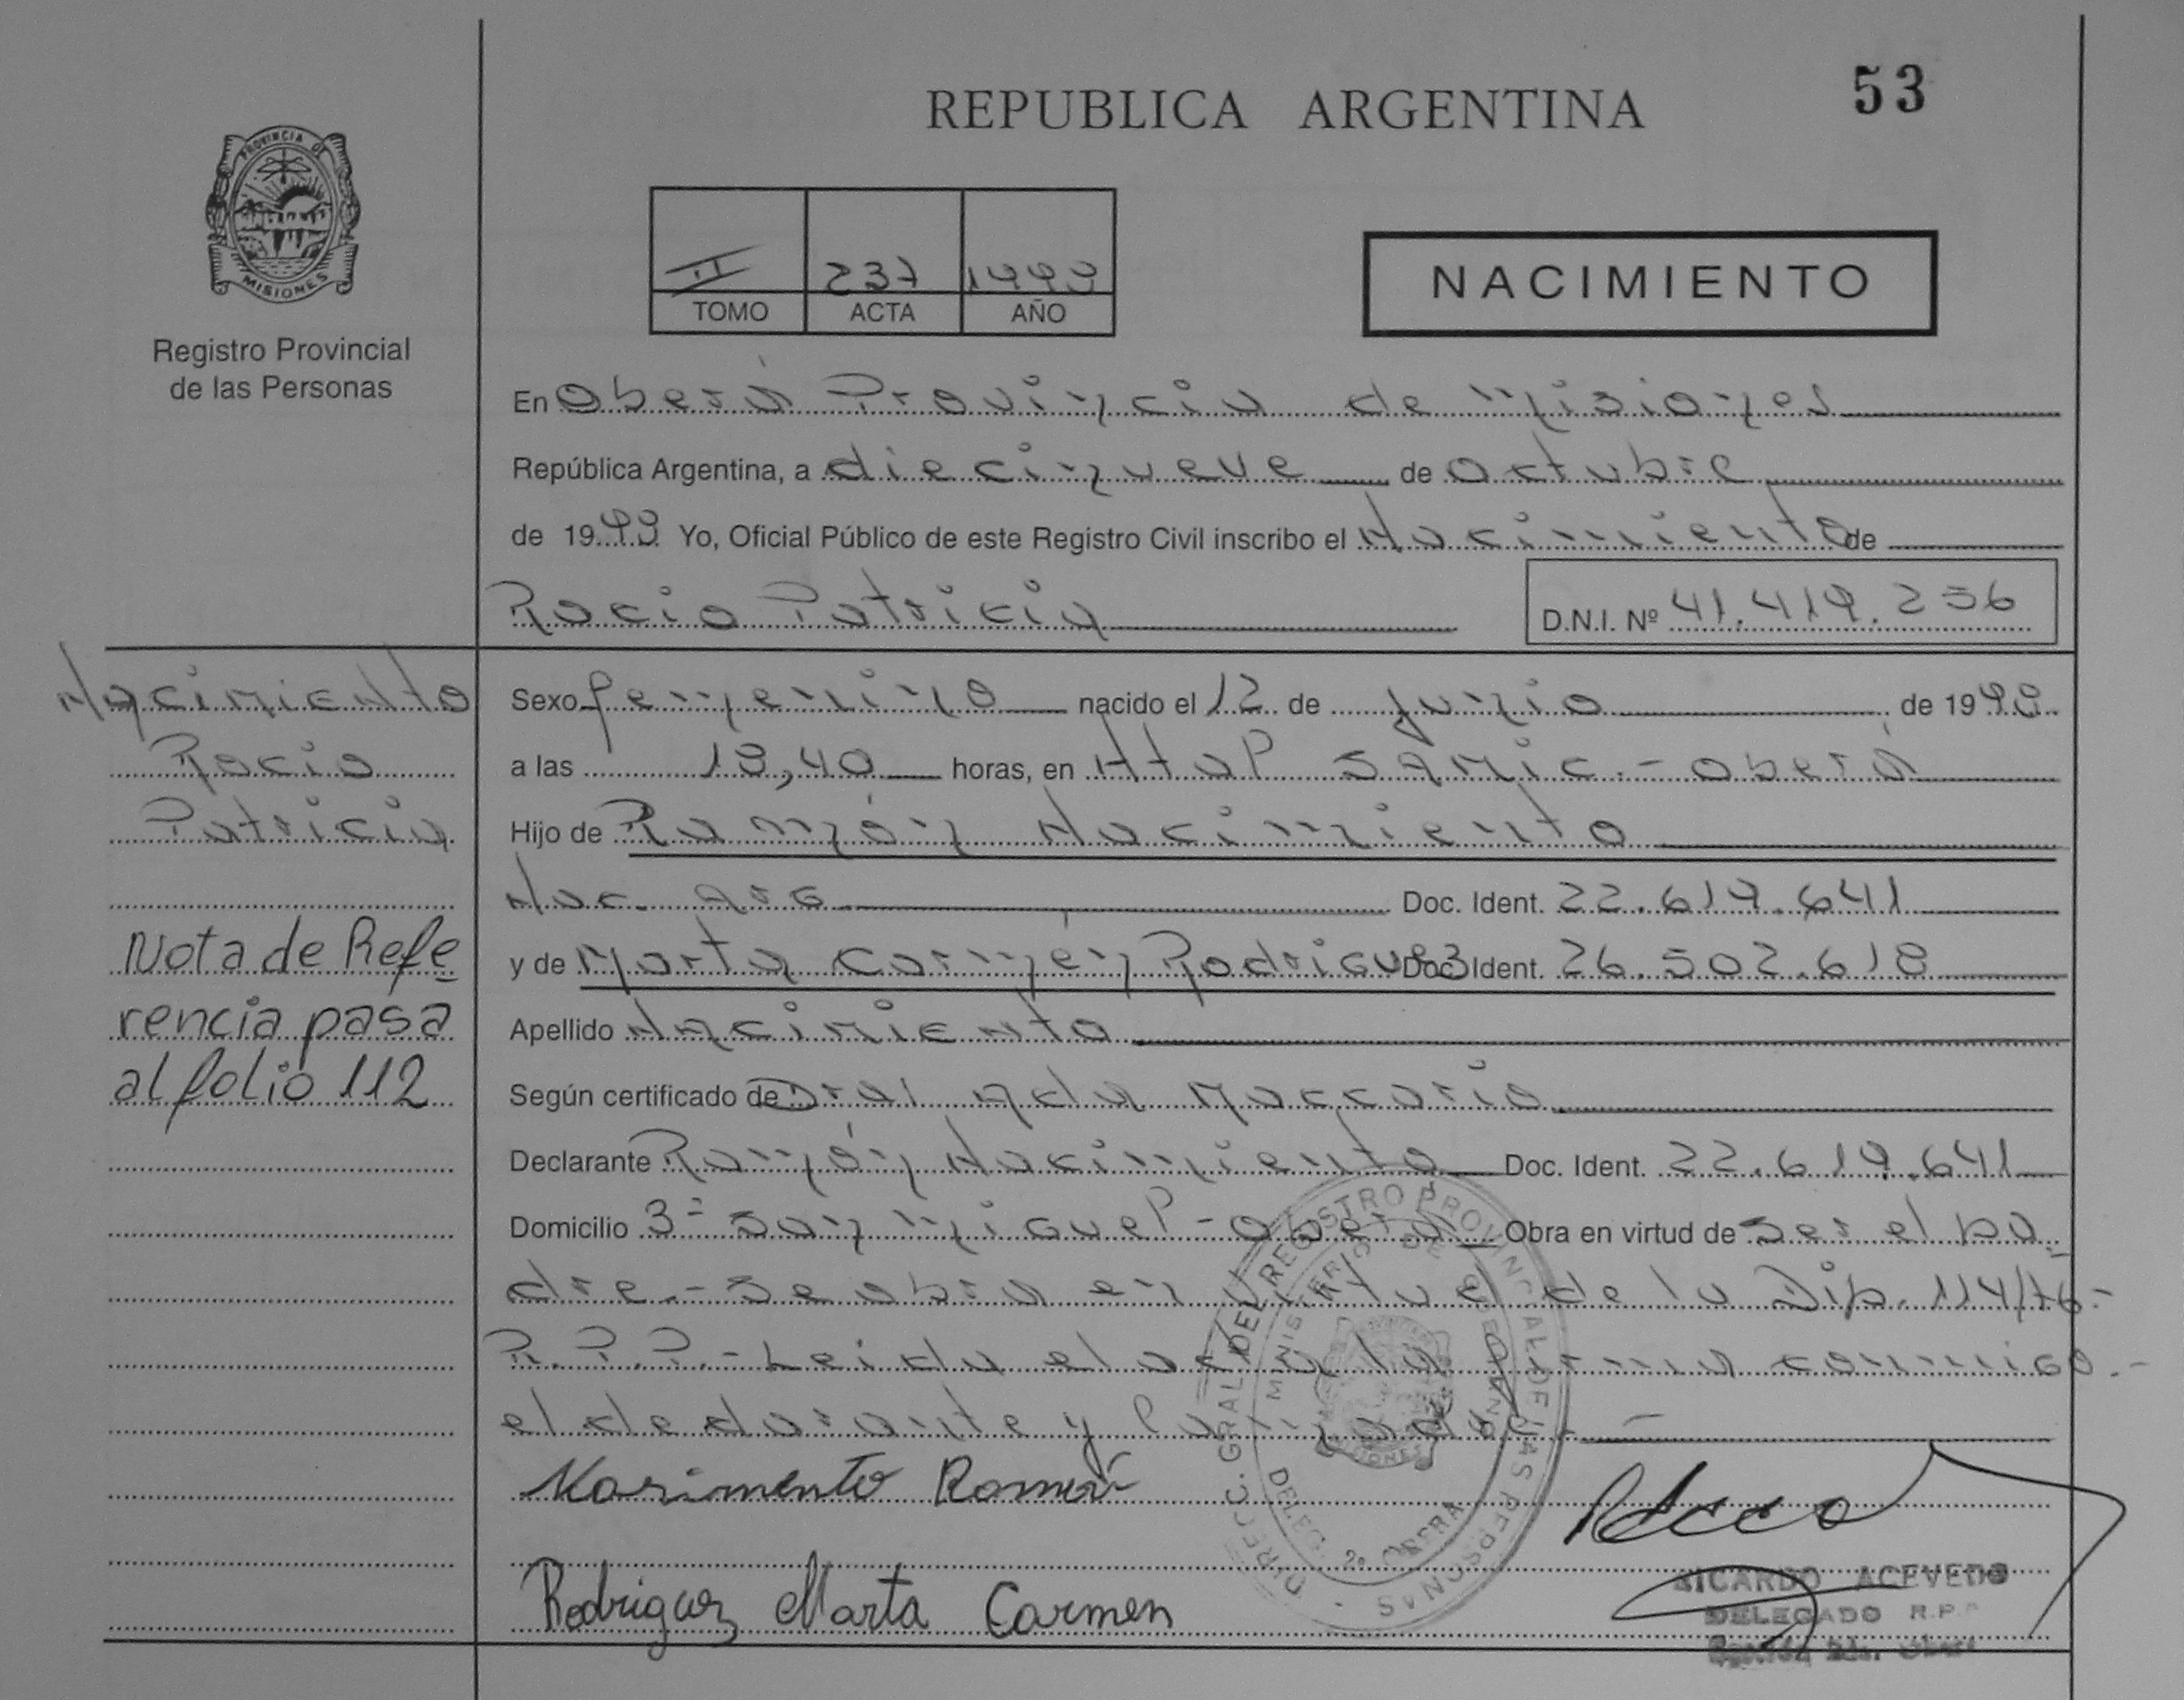 REPUBLICA ARGENTINA
53
PROVINCIA DE
MISIONES
Registro Provincial
de las Personas
II 237 1999
TOMO ACTA AÑO
NACIMIENTO
En Oberá Provincia de Misiones
República Argentina, a diecinueve de octubre
de 1999 Yo, Oficial Público de este Registro Civil inscribo el Nacimiento de
Rocio Patricia
D.N.I. Nº 41.419.256
Nacimiento
Rocio
Patricia
Nota de Refe
rencia pasa
al folio 112
Sexo femenino nacido el 12 de junio de 19
a las 18,40 horas, en Htal Samic.- Oberá
Hijo de Ramón Nacimiento
Nac. Arg Doc. Ident. 22.619.641
y de Marta Carmén Rodriguez Doc. Ident. 26.502.618
Apellido Nacimiento
Según certificado de Dra Ada
Declarante Ramón Nacimiento Doc. Ident. 22.619.641
Domicilio San Miguel - Oberá Obra en virtud de ser el pa
dre.- Se abra en virtud de la Disp. 114/76.-
R.P.P.- Leida el acta la firma conmigo.-
el declarante y
Nasimento Ramon
Rodriguez Marta Carmen
DIRECC. GRAL. DEL REGISTRO PROVINCIAL DE LAS PERSONAS
MINISTERIO DE GOBIERNO
MISIONES
DELEG. 2º OBERA
RICARDO ACEVEDO
DELEGADO R.P.P.